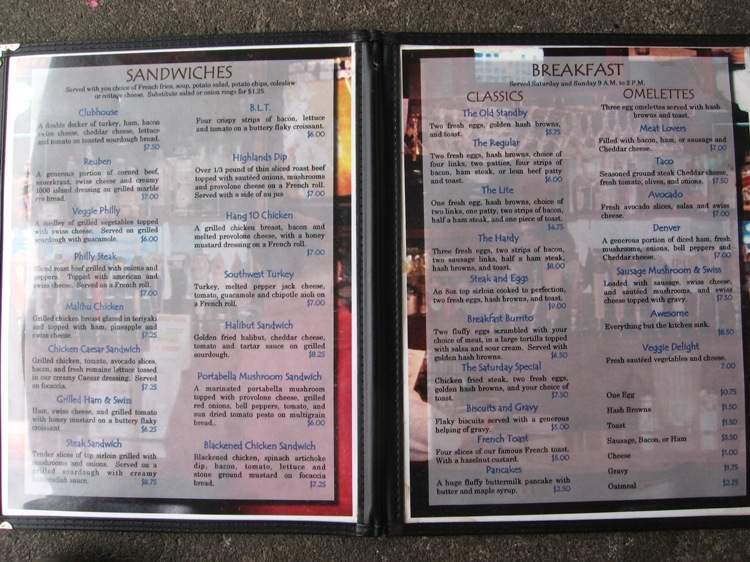 SANDWICHES
Served with you choice of French fries, soup, potato salad, potato chips, coleslaw
or cottage cheese. Substitute salad or onion rings for $1.25
Clubhouse
A double decker of turkey, ham, bacon
swiss cheese, cheddar cheese, lettuce
and tomato on toasted sourdough bread.
$7.50
Reuben
A generous portion of corned beef,
sauerkraut, swiss cheese and creamy
1000 island dressing on grilled marble
rye bread. $7.00
Veggie Philly
A medley of grilled vegetables topped
with swiss cheese. Served on grilled
sourdough with guacamole. $6.00
Philly Steak
Sliced roast beef grilled with onions and
peppers. Topped with american and
swiss cheese. Served on a French roll.
$7.00
Malibu Chicken
Grilled chicken breast glazed in teriyaki
and topped with ham, pineapple and
swiss cheese. $7.25
Chicken Caesar Sandwich
Grilled chicken, tomato, avocado slices,
bacon, and fresh romaine lettuce tossed
in our creamy Caesar dressing. Served
on focaccia. $7.25
Grilled Ham & Swiss
Ham, swiss cheese, and grilled tomato
with honey mustard on a buttery flaky
croissant. $6.25
Steak Sandwich
Tender slices of top sirloin grilled with
mushrooms and onions. Served on a
grilled sourdough with creamy
sauce. $8.75
B.L.T.
Four crispy strips of bacon, lettuce
and tomato on a buttery flaky croissant.
$6.00
Highlands Dip
Over 1/3 pound of thin sliced roast beef
topped with sautéed onions, mushrooms
and provolone cheese on a French roll.
Served with a side of au jus $7.00
Hang 10 Chicken
A grilled chicken breast, bacon and
melted provolone cheese, with a honey
mustard dressing on a French roll.
$7.00
Southwest Turkey
Turkey, melted pepper jack cheese,
tomato, guacamole and chipotle aioli on
a French roll. $7.00
Halibut Sandwich
Golden fried halibut, cheddar cheese,
tomato and tartar sauce on grilled
sourdough. $8.25
Portabella Mushroom Sandwich
A marinated portabella mushroom
topped with provolone cheese, grilled
red onions, bell peppers, tomato, and
sun dried tomato pesto on multigrain
bread. $6.00
Blackened Chicken Sandwich
Blackened chicken, spinach artichoke
dip, bacon, tomato, lettuce and
stone ground mustard on focaccia
bread. $7.25
BREAKFAST
Served Saturday and Sunday 9 A.M. to 2 P.M.
CLASSICS
The Old Standby
Two fresh eggs, golden hash browns,
and toast. $5.75
The Regular
Two fresh eggs, hash browns, choice of
four links, two patties, four strips of
bacon, ham steak, or lean beef patty
and toast. $6.00
The Lite
One fresh egg, hash browns, choice of
two links, one patty, two strips of bacon,
half a ham steak, and one piece of toast.
$4.75
The Hardy
Three fresh eggs, two strips of bacon,
two sausage links, half a ham steak,
hash browns, and toast. $8.00
Steak and Eggs
An 8oz top sirloin cooked to perfection,
two fresh eggs, hash browns, and toast.
$9.00
Breakfast Burrito
Two fluffy eggs scrambled with your
choice of meat, in a large tortilla topped
with salsa and sour cream. Served with
golden hash browns. $6.50
The Saturday Special
Chicken fried steak, two fresh eggs,
golden hash browns, and your choice of
toast. $7.50
Biscuits and Gravy
Flaky biscuits served with a generous
helping of gravy. $5.00
French Toast
Four slices of our famous French toast.
With a hazelnut custard. $5.00
Pancakes
A huge fluffy buttermilk pancake with
butter and maple syrup. $3.50
OMELETTES
Three egg omelettes served with hash
browns and toast.
Meat Lovers
Filled with bacon, ham, or sausage and
Cheddar cheese. $7.00
Taco
Seasoned ground steak Cheddar cheese,
fresh tomato, olives, and onions. $7.50
Avocado
Fresh avocado slices, salsa and swiss
cheese. $7.00
Denver
A generous portion of diced ham, fresh
mushrooms, onions, bell peppers and
Cheddar cheese. $7.00
Sausage Mushroom & Swiss
Loaded with sausage, swiss cheese,
and sautéed mushrooms, and swiss
cheese topped with gravy. $7.50
Awesome
Everything but the kitchen sink.
$8.50
Veggie Delight
Fresh sautéed vegetables and cheese.
7.00
One Egg $0.75
Hash Browns $1.50
Toast $1.50
Sausage, Bacon, or Ham $3.50
Cheese $1.00
Gravy $1.75
Oatmeal $2.25